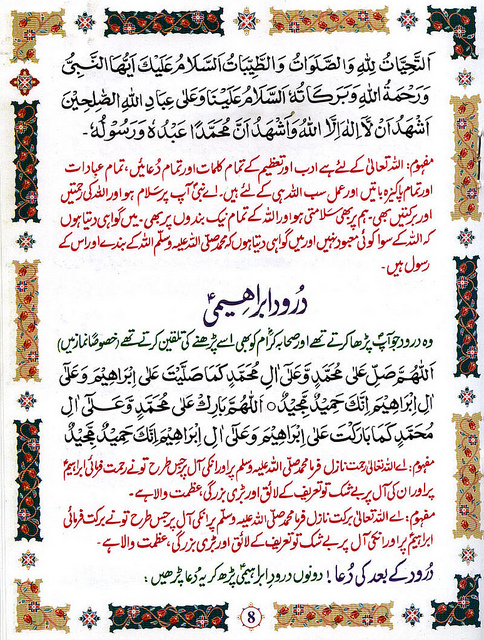 اَلتَّحِيَّاتُ لِلّٰهِ وَالصَّلَوَاتُ وَالطَّيِّبَاتُ اَلسَّلَامُ عَلَيْكَ اَيُّهَا النَّبِيُّ
وَرَحْمَةُ اللّٰهِ وَبَرَكَاتُهٗ اَلسَّلَامُ عَلَيْنَا وَعَلٰى عِبَادِ اللّٰهِ الصّٰلِحِيْنَ
اَشْهَدُ اَنْ لَّا اِلٰهَ اِلَّا اللّٰهُ وَاَشْهَدُ اَنَّ مُحَمَّدًا عَبْدُهٗ وَرَسُوْلُهٗ۔
مفہوم: اللہ تعالیٰ کے لئے ہے ادب اور تعظیم کے تمام کلمات اور تمام دعائیں، تمام عبادات
اور تمام پاکیزہ باتیں اور عمل سب اللہ ہی کے لئے ہیں۔ اے نبیؐ آپ پر سلام ہو اور اللہ کی رحمتیں
اور برکتیں بھی۔ ہم پر بھی سلامتی ہو اور اللہ کے تمام نیک بندوں پر بھی۔ میں گواہی دیتا ہوں
کہ اللہ کے سوا کوئی معبود نہیں اور میں گواہی دیتا ہوں کہ محمد صلی اللہ علیہ وسلم اللہ کے بندے اور اس کے
رسول ہیں۔
درود ابراھیمیؑ
وہ درود جو آپؐ پڑھا کرتے تھے اور صحابہ کرامؓ کو بھی اسے پڑھنے کی تلقین کرتے تھے (خصوصًا نماز میں)
اَللّٰهُمَّ صَلِّ عَلٰى مُحَمَّدٍ وَّعَلٰى اٰلِ مُحَمَّدٍ كَمَا صَلَّيْتَ عَلٰى اِبْرَاهِيْمَ وَعَلٰى
اٰلِ اِبْرَاهِيْمَ اِنَّكَ حَمِيْدٌ مَّجِيْدٌ○ اَللّٰهُمَّ بَارِكْ عَلٰى مُحَمَّدٍ وَّعَلٰى اٰلِ
مُحَمَّدٍ كَمَا بَارَكْتَ عَلٰى اِبْرَاهِيْمَ وَعَلٰى اٰلِ اِبْرَاهِيْمَ اِنَّكَ حَمِيْدٌ مَّجِيْدٌ
مفہوم: اے اللہ تعالیٰ رحمت نازل فرما محمد صلی اللہ علیہ وسلم پر اور انکی آل پر جس طرح تو نے رحمت فرمائی ابراہیمؑ
پر اور ان کی آل پر بے شک تو تعریف کے لائق اور بڑی بزرگی، عظمت والا ہے۔
مفہوم: اے اللہ تعالیٰ برکت نازل فرما محمد صلی اللہ علیہ وسلم پر انکی آل پر جس طرح تو نے برکت فرمائی
ابراہیمؑ پر اور انکی آل پر بے شک تو تعریف کے لائق اور بڑی بزرگی، عظمت والا ہے۔
درود کے بعد کی دعا! دونوں درودِ ابراہیمیؑ پڑھ کر یہ دعا پڑھیں:
8